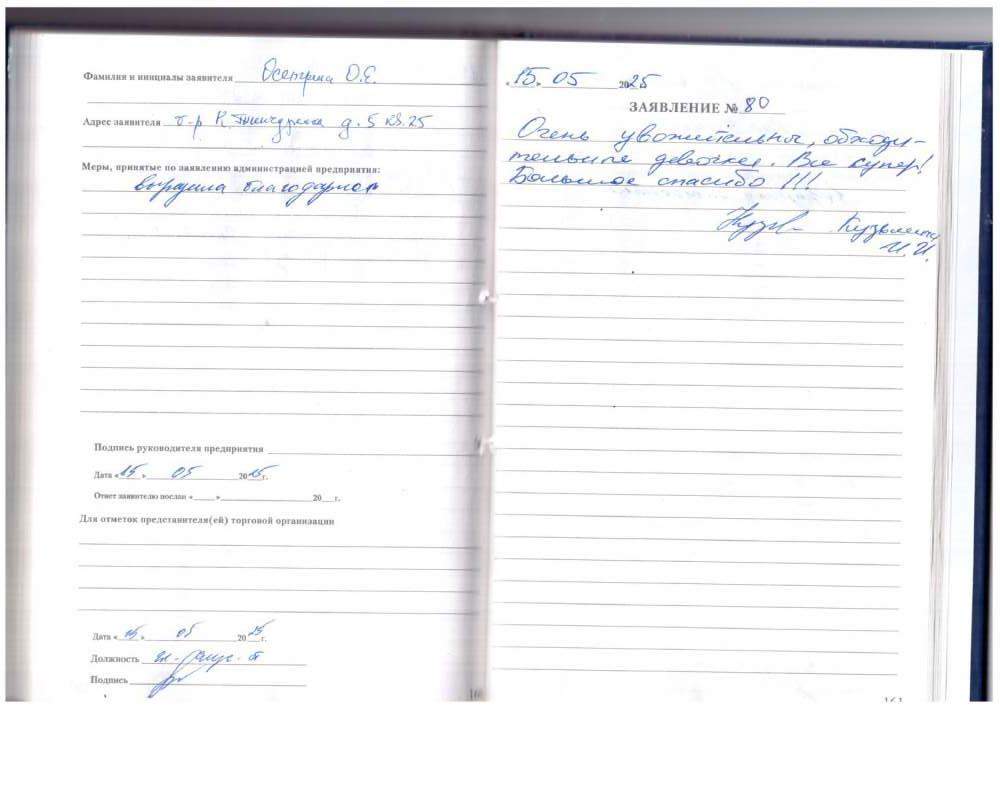 Фамилия и инициалы заявителя Осетрина О.Е.
Адрес заявителя б-р К. д. 5 кв. 25
Меры, принятые по заявлению администрацией предприятия:
выразила благодарность
Подпись руководителя предприятия
Дата «15» 05 2025 г.
Ответ заявителю послан « » 20 г.
Для отметок представителя(ей) торговой организации
Дата «15» 05 2025 г.
Должность
Подпись
160
«15» 05 2025
ЗАЯВЛЕНИЕ № 80
Очень уважительны, обходи-
тельные девочки. Все супер!
Большое спасибо !!!
И.И.
161